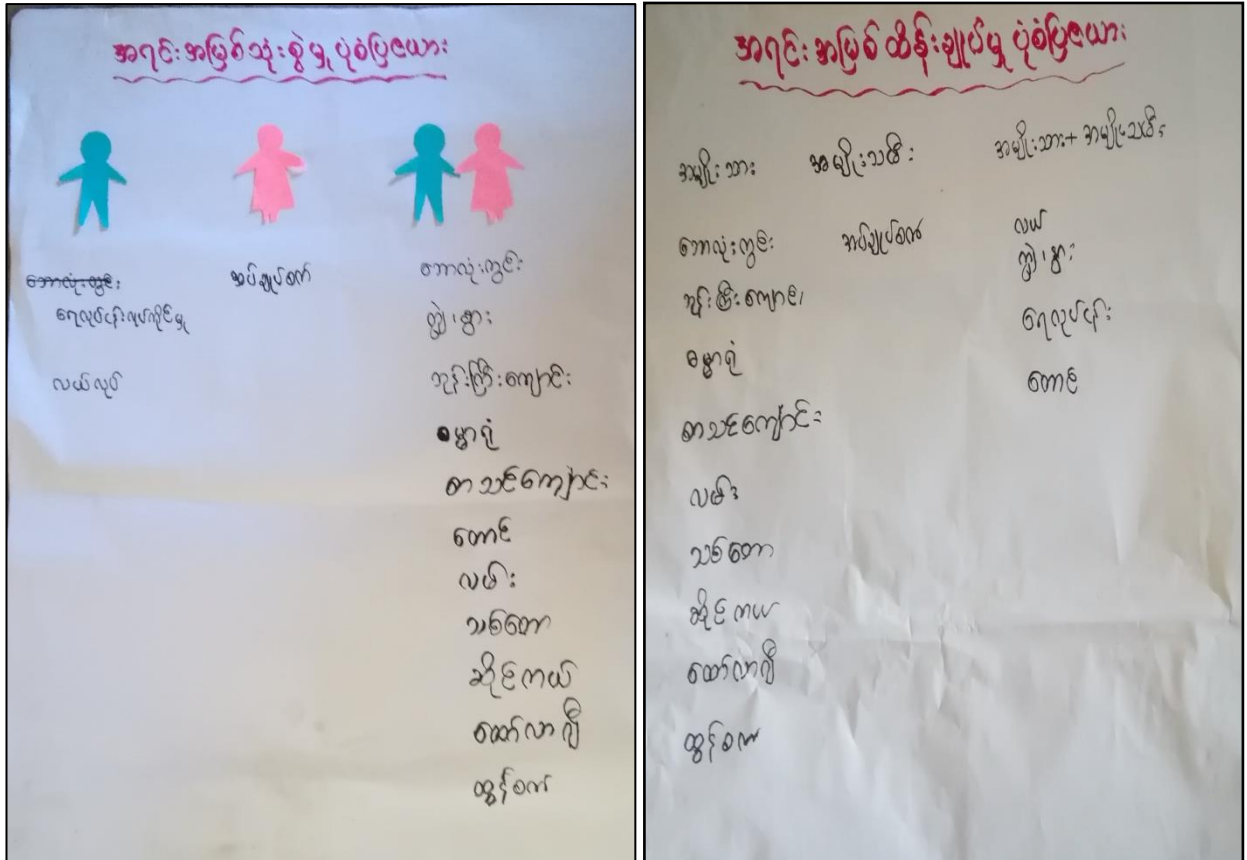 အရင်းအမြစ်သုံးစွဲမှု ပုံစံပြဇယား
ဘောလုံးကွင်း
ရေလုပ်ငန်းလုပ်ကိုင်မှု
လယ်လုပ်
အပ်ချုပ်စက်
ဘောလုံးကွင်း
ကျွဲ၊ နွား
ဘုန်းကြီးကျောင်း
ဓမ္မာရုံ
စာသင်ကျောင်း
တောင်
လမ်း
သစ်တော
ဆိုင်ကယ်
ထော်လာဂျီ
ထွန်စက်
အရင်းအမြစ် ထိန်းချုပ်မှု ပုံစံပြဇယား
အမျိုးသား အမျိုးသမီး အမျိုးသား+အမျိုးသမီး
ဘောလုံးကွင်း
ဘုန်းကြီးကျောင်း
ဓမ္မာရုံ
စာသင်ကျောင်း
လမ်း
သစ်တော
ဆိုင်ကယ်
ထော်လာဂျီ
ထွန်စက်
အပ်ချုပ်စက်
လယ်
ကျွဲ၊ နွား
ရေလုပ်ငန်း
တောင်